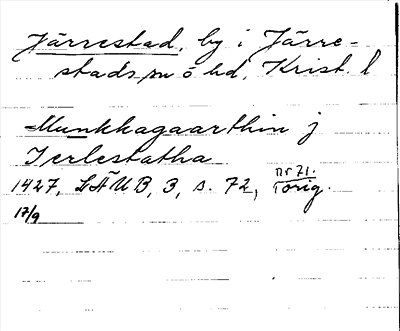 Järrestad, by i Järre-
stads sn o hd, Krist. l
Munkkagaarthin j
Ierlestatha
1427, LÄUB, 3, s. 72, nr 71. orig.
17/9